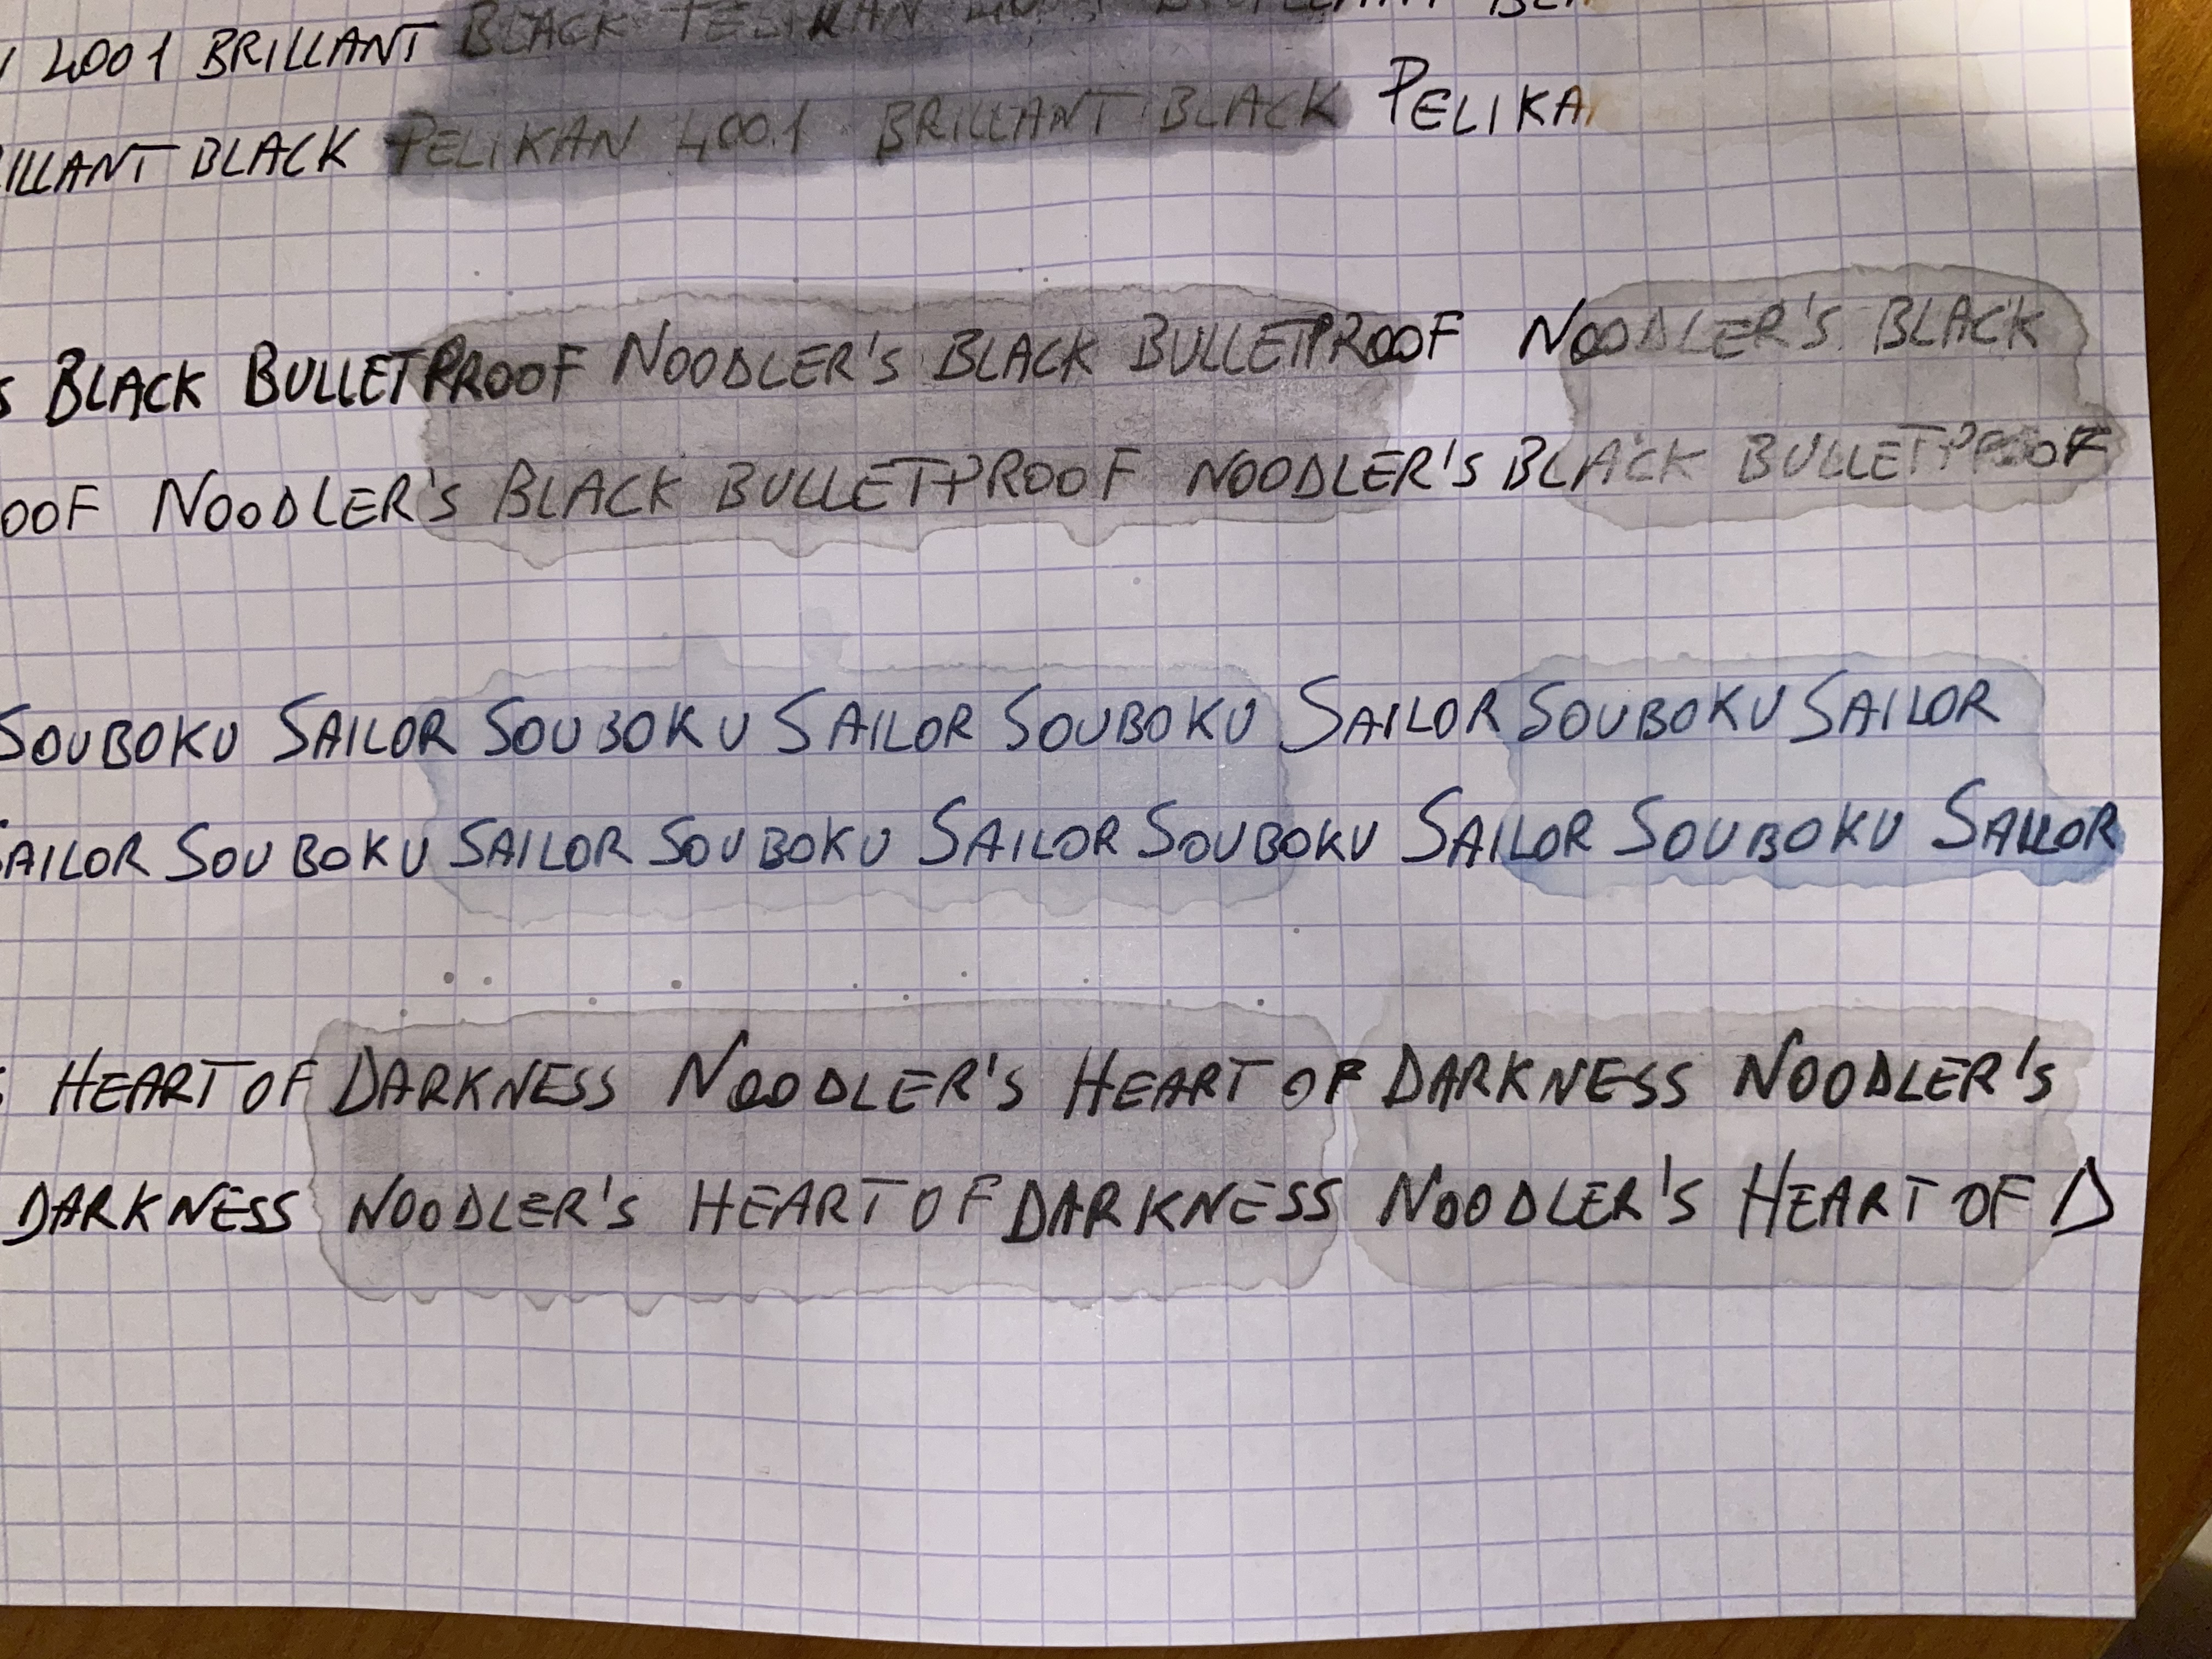 4001 BRILLANT BLACK PELIKAN
BRILLANT BLACK PELIKAN 4001 BRILLANT BLACK PELIKA
BLACK BULLETPROOF NOODLER'S BLACK BULLETPROOF NOODLER'S BLACK
OOF NOODLER'S BLACK BULLETPROOF NOODLER'S BLACK BULLETPROOF
SOUBOKU SAILOR SOUBOKU SAILOR SOUBOKU SAILOR SOUBOKU SAILOR
SAILOR SOUBOKU SAILOR SOUBOKU SAILOR SOUBOKU SAILOR SOUBOKU SAILOR
HEART OF DARKNESS NOODLER'S HEART OF DARKNESS NOODLER'S
DARKNESS NOODLER'S HEART OF DARKNESS NOODLER'S HEART OF D